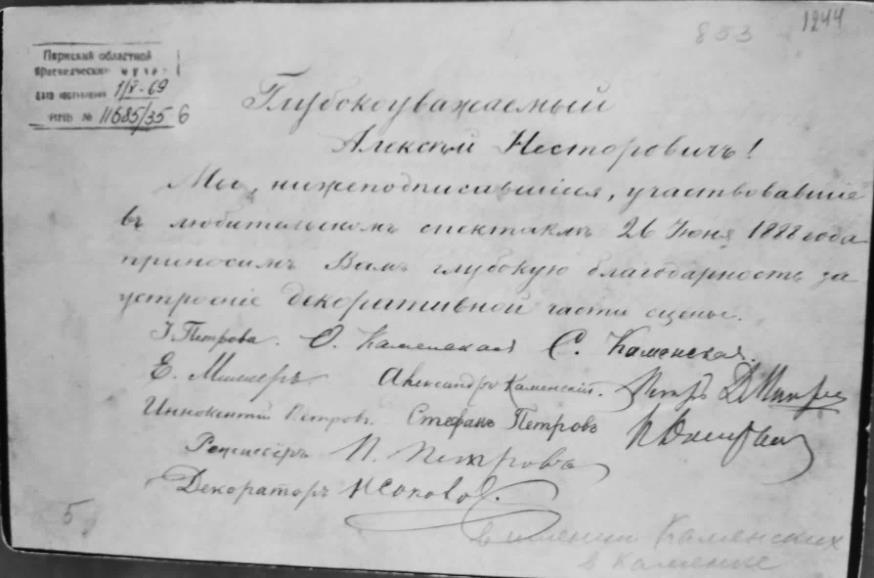 853
1244
Пермский областной
краеведческий музей
дата поступления 1/V-69
№ 11685/35 б
Глубокоуважаемый
Алексѣй Несторовичъ!
Мы, нижеподписавшіися, участвовавшіе
въ любительскомъ спектаклѣ 26 Іюня 1888 года
приносимъ Вамъ глубокую благодарность за
устроеніе декоративной части сцены.
І. Петрова. О. Каменская С. Каменская.
Е. Миллеръ Александръ Каменскій. Петръ
Иннокентій Петровъ. Стефанъ Петровъ
Режиссёръ П. Петровъ
Декораторъ
5
в имении Каменских
в Каменке